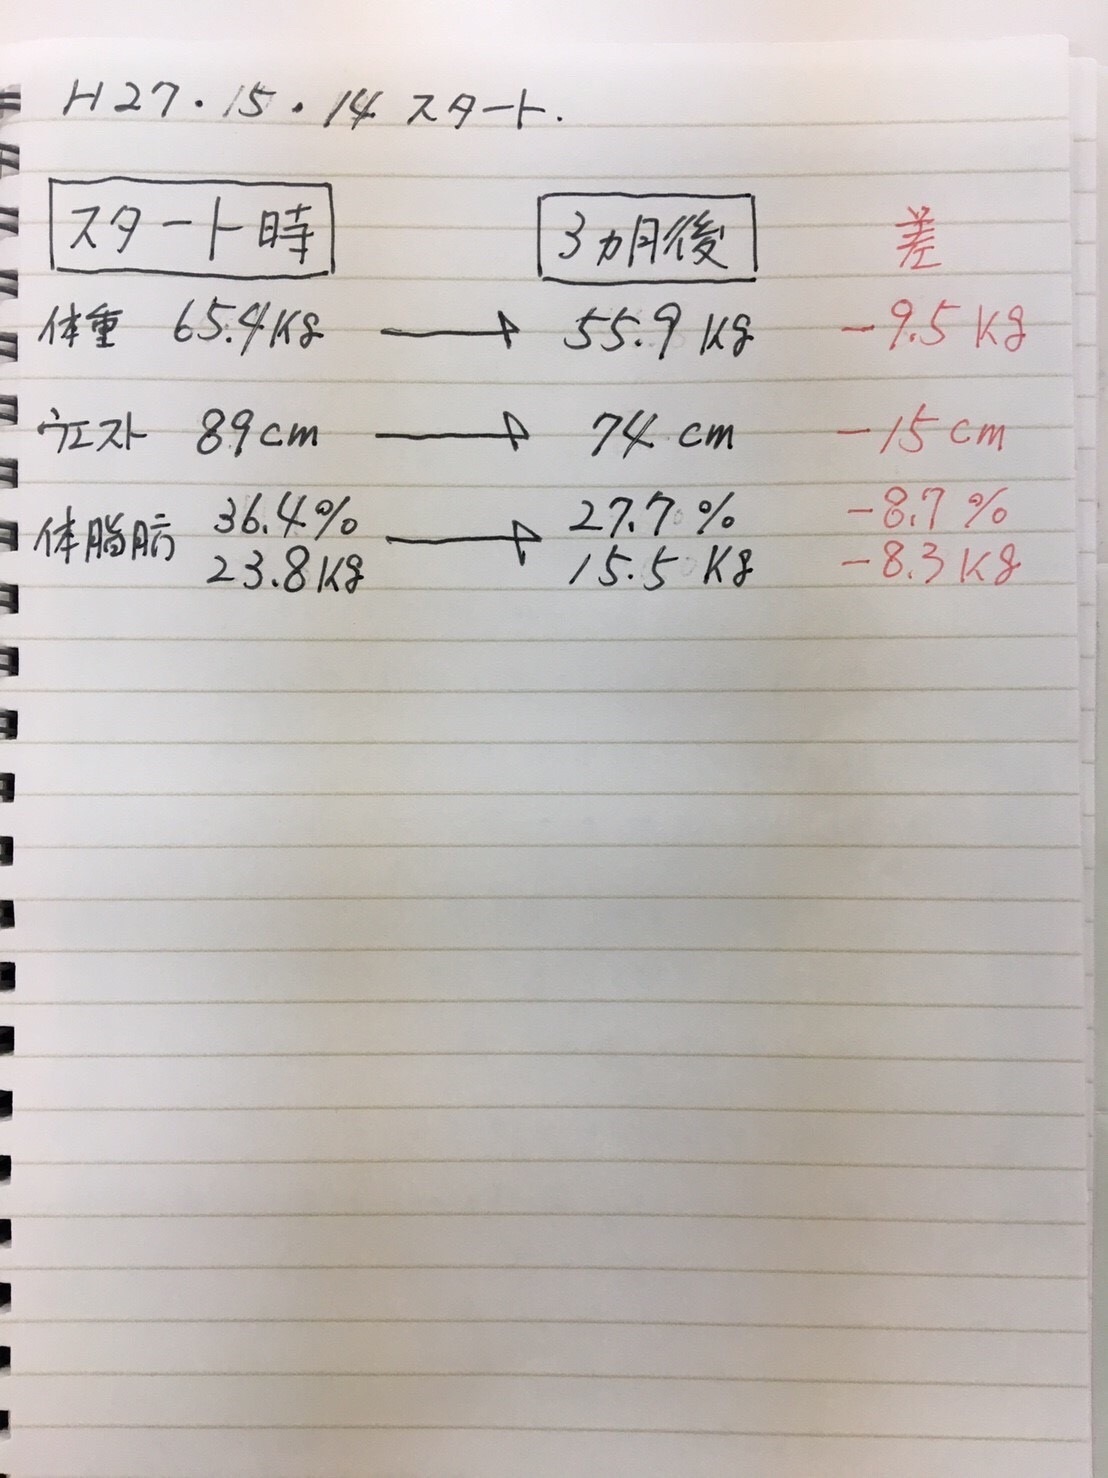 H27.15.14 スタート.
スタート時 3ヵ月後 差
体重 65.4Kg → 55.9Kg -9.5Kg
ウエスト 89cm → 74cm -15cm
体脂肪 36.4% → 27.7% -8.7%
23.8Kg 15.5Kg -8.3Kg